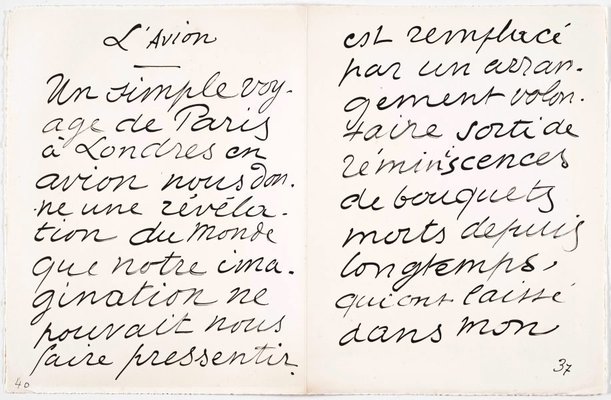 L'Avion
Un simple voy-
age de Paris
à Londres en
avion nous don-
ne une révéla-
tion du Monde
que notre ima-
gination ne
pouvait nous
faire pressentir.
40
est remplacé
par un arran-
gement volon-
taire sorti de
réminiscences
de bouquets
morts depuis
longtemps,
qui ont laissé
dans mon
37